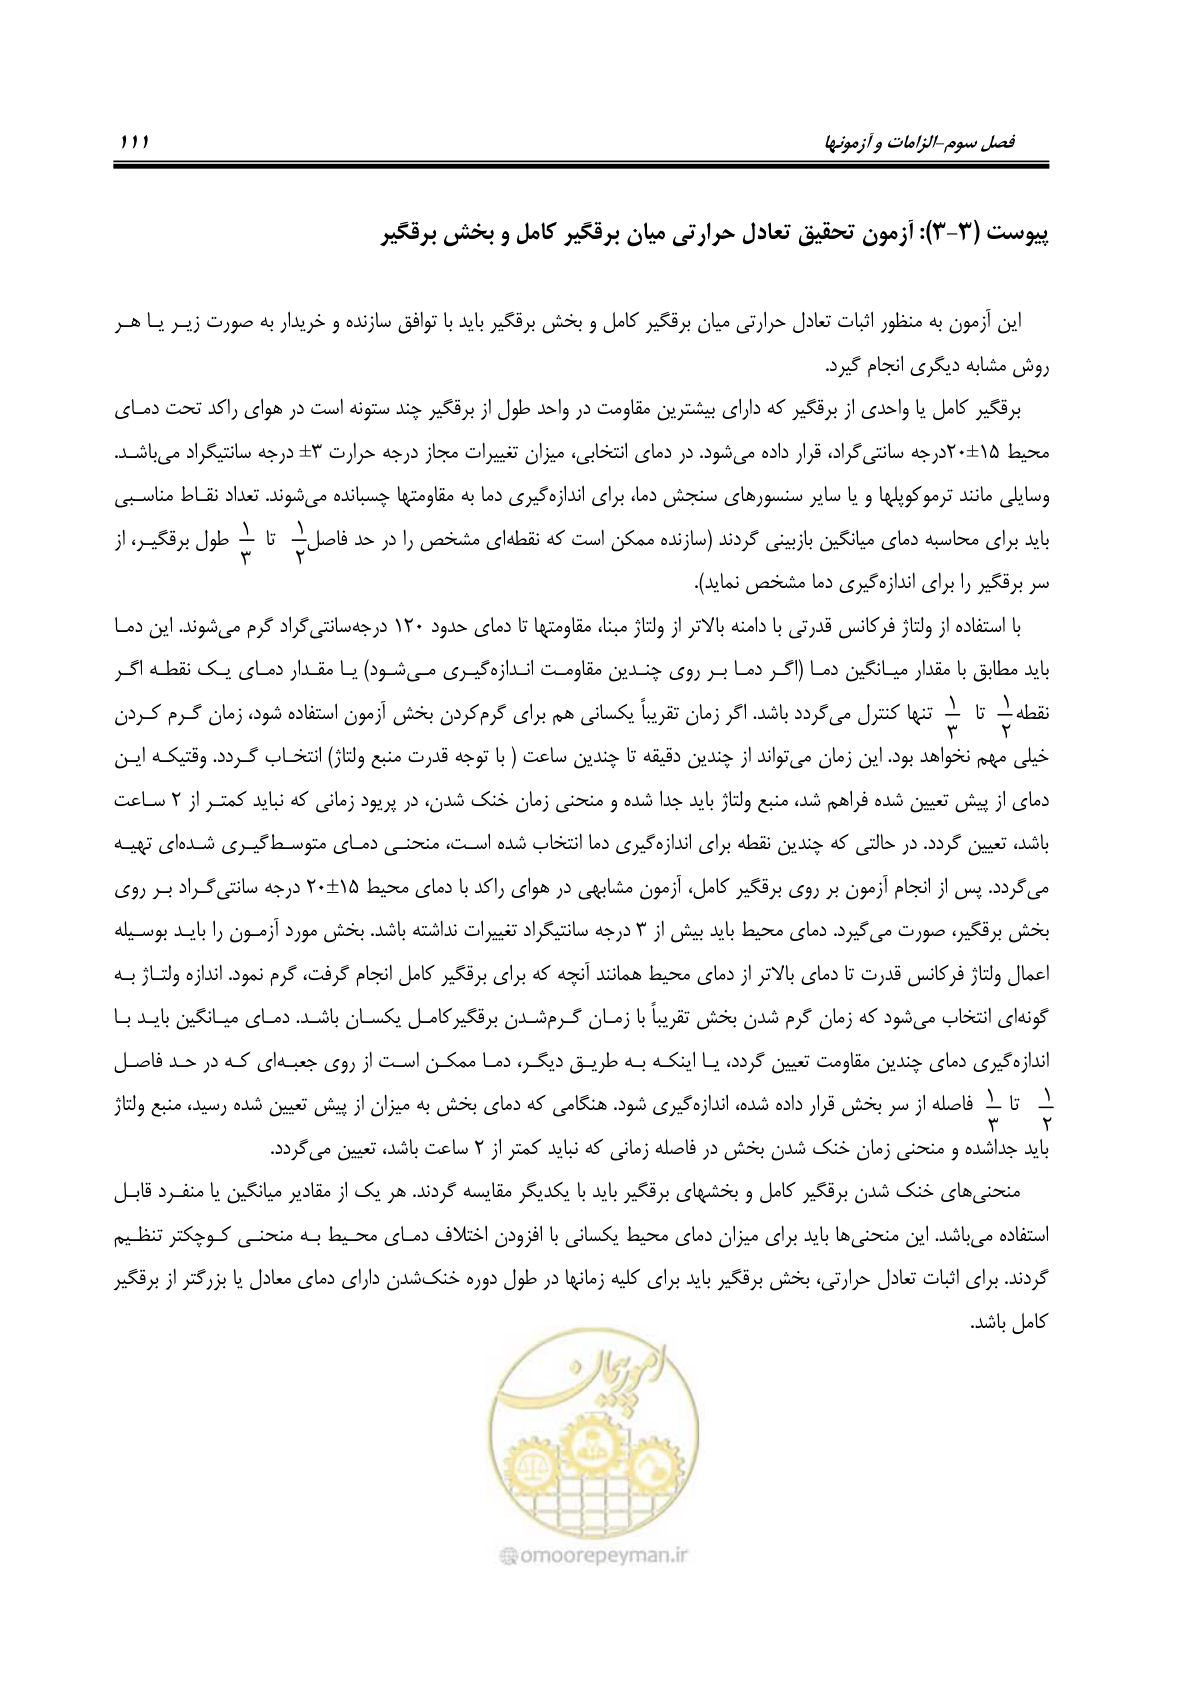 فصل سوم-الزامات و آزمونها ۱۱۱
پیوست (۳-۳): آزمون تحقیق تعادل حرارتی میان برقگیر کامل و بخش برقگیر
این آزمون به منظور اثبات تعادل حرارتی میان برقگیر کامل و بخش برقگیر باید با توافق سازنده و خریدار به صورت زیر یا هر
روش مشابه دیگری انجام گیرد.
برقگیر کامل یا واحدی از برقگیر که دارای بیشترین مقاومت در واحد طول از برقگیر چند ستونه است در هوای راکد تحت دمای
محیط ۱۵±۲۰درجه سانتی‌گراد، قرار داده می‌شود. در دمای انتخابی، میزان تغییرات مجاز درجه حرارت ۳± درجه سانتیگراد می‌باشد.
وسایلی مانند ترموکوپلها و یا سایر سنسورهای سنجش دما، برای اندازه‌گیری دما به مقاومتها چسبانده می‌شوند. تعداد نقاط مناسبی
باید برای محاسبه دمای میانگین بازبینی گردند (سازنده ممکن است که نقطه‌ای مشخص را در حد فاصل ۱/۲ تا ۱/۳ طول برقگیر، از
سر برقگیر را برای اندازه‌گیری دما مشخص نماید).
با استفاده از ولتاژ فرکانس قدرتی با دامنه بالاتر از ولتاژ مبنا، مقاومتها تا دمای حدود ۱۲۰ درجه‌سانتی‌گراد گرم می‌شوند. این دما
باید مطابق با مقدار میانگین دما (اگر دما بر روی چندین مقاومت اندازه‌گیری می‌شود) یا مقدار دمای یک نقطه اگر
نقطه ۱/۲ تا ۱/۳ تنها کنترل می‌گردد باشد. اگر زمان تقریباً یکسانی هم برای گرم‌کردن بخش آزمون استفاده شود، زمان گرم کردن
خیلی مهم نخواهد بود. این زمان می‌تواند از چندین دقیقه تا چندین ساعت ( با توجه قدرت منبع ولتاژ) انتخاب گردد. وقتیکه این
دمای از پیش تعیین شده فراهم شد، منبع ولتاژ باید جدا شده و منحنی زمان خنک شدن، در پریود زمانی که نباید کمتر از ۲ ساعت
باشد، تعیین گردد. در حالتی که چندین نقطه برای اندازه‌گیری دما انتخاب شده است، منحنی دمای متوسط‌گیری شده‌ای تهیه
می‌گردد. پس از انجام آزمون بر روی برقگیر کامل، آزمون مشابهی در هوای راکد با دمای محیط ۱۵±۲۰ درجه سانتی‌گراد بر روی
بخش برقگیر، صورت می‌گیرد. دمای محیط باید بیش از ۳ درجه سانتیگراد تغییرات نداشته باشد. بخش مورد آزمون را باید بوسیله
اعمال ولتاژ فرکانس قدرت تا دمای بالاتر از دمای محیط همانند آنچه که برای برقگیر کامل انجام گرفت، گرم نمود. اندازه ولتاژ به
گونه‌ای انتخاب می‌شود که زمان گرم شدن بخش تقریباً با زمان گرم‌شدن برقگیرکامل یکسان باشد. دمای میانگین باید با
اندازه‌گیری دمای چندین مقاومت تعیین گردد، یا اینکه به طریق دیگر، دما ممکن است از روی جعبه‌ای که در حد فاصل
۱/۲ تا ۱/۳ فاصله از سر بخش قرار داده شده، اندازه‌گیری شود. هنگامی که دمای بخش به میزان از پیش تعیین شده رسید، منبع ولتاژ
باید جداشده و منحنی زمان خنک شدن بخش در فاصله زمانی که نباید کمتر از ۲ ساعت باشد، تعیین می‌گردد.
منحنی‌های خنک شدن برقگیر کامل و بخشهای برقگیر باید با یکدیگر مقایسه گردند. هر یک از مقادیر میانگین یا منفرد قابل
استفاده می‌باشد. این منحنی‌ها باید برای میزان دمای محیط یکسانی با افزودن اختلاف دمای محیط به منحنی کوچکتر تنظیم
گردند. برای اثبات تعادل حرارتی، بخش برقگیر باید برای کلیه زمانها در طول دوره خنک‌شدن دارای دمای معادل یا بزرگتر از برقگیر
کامل باشد.
امور پیمان
@omoorepeyman.ir